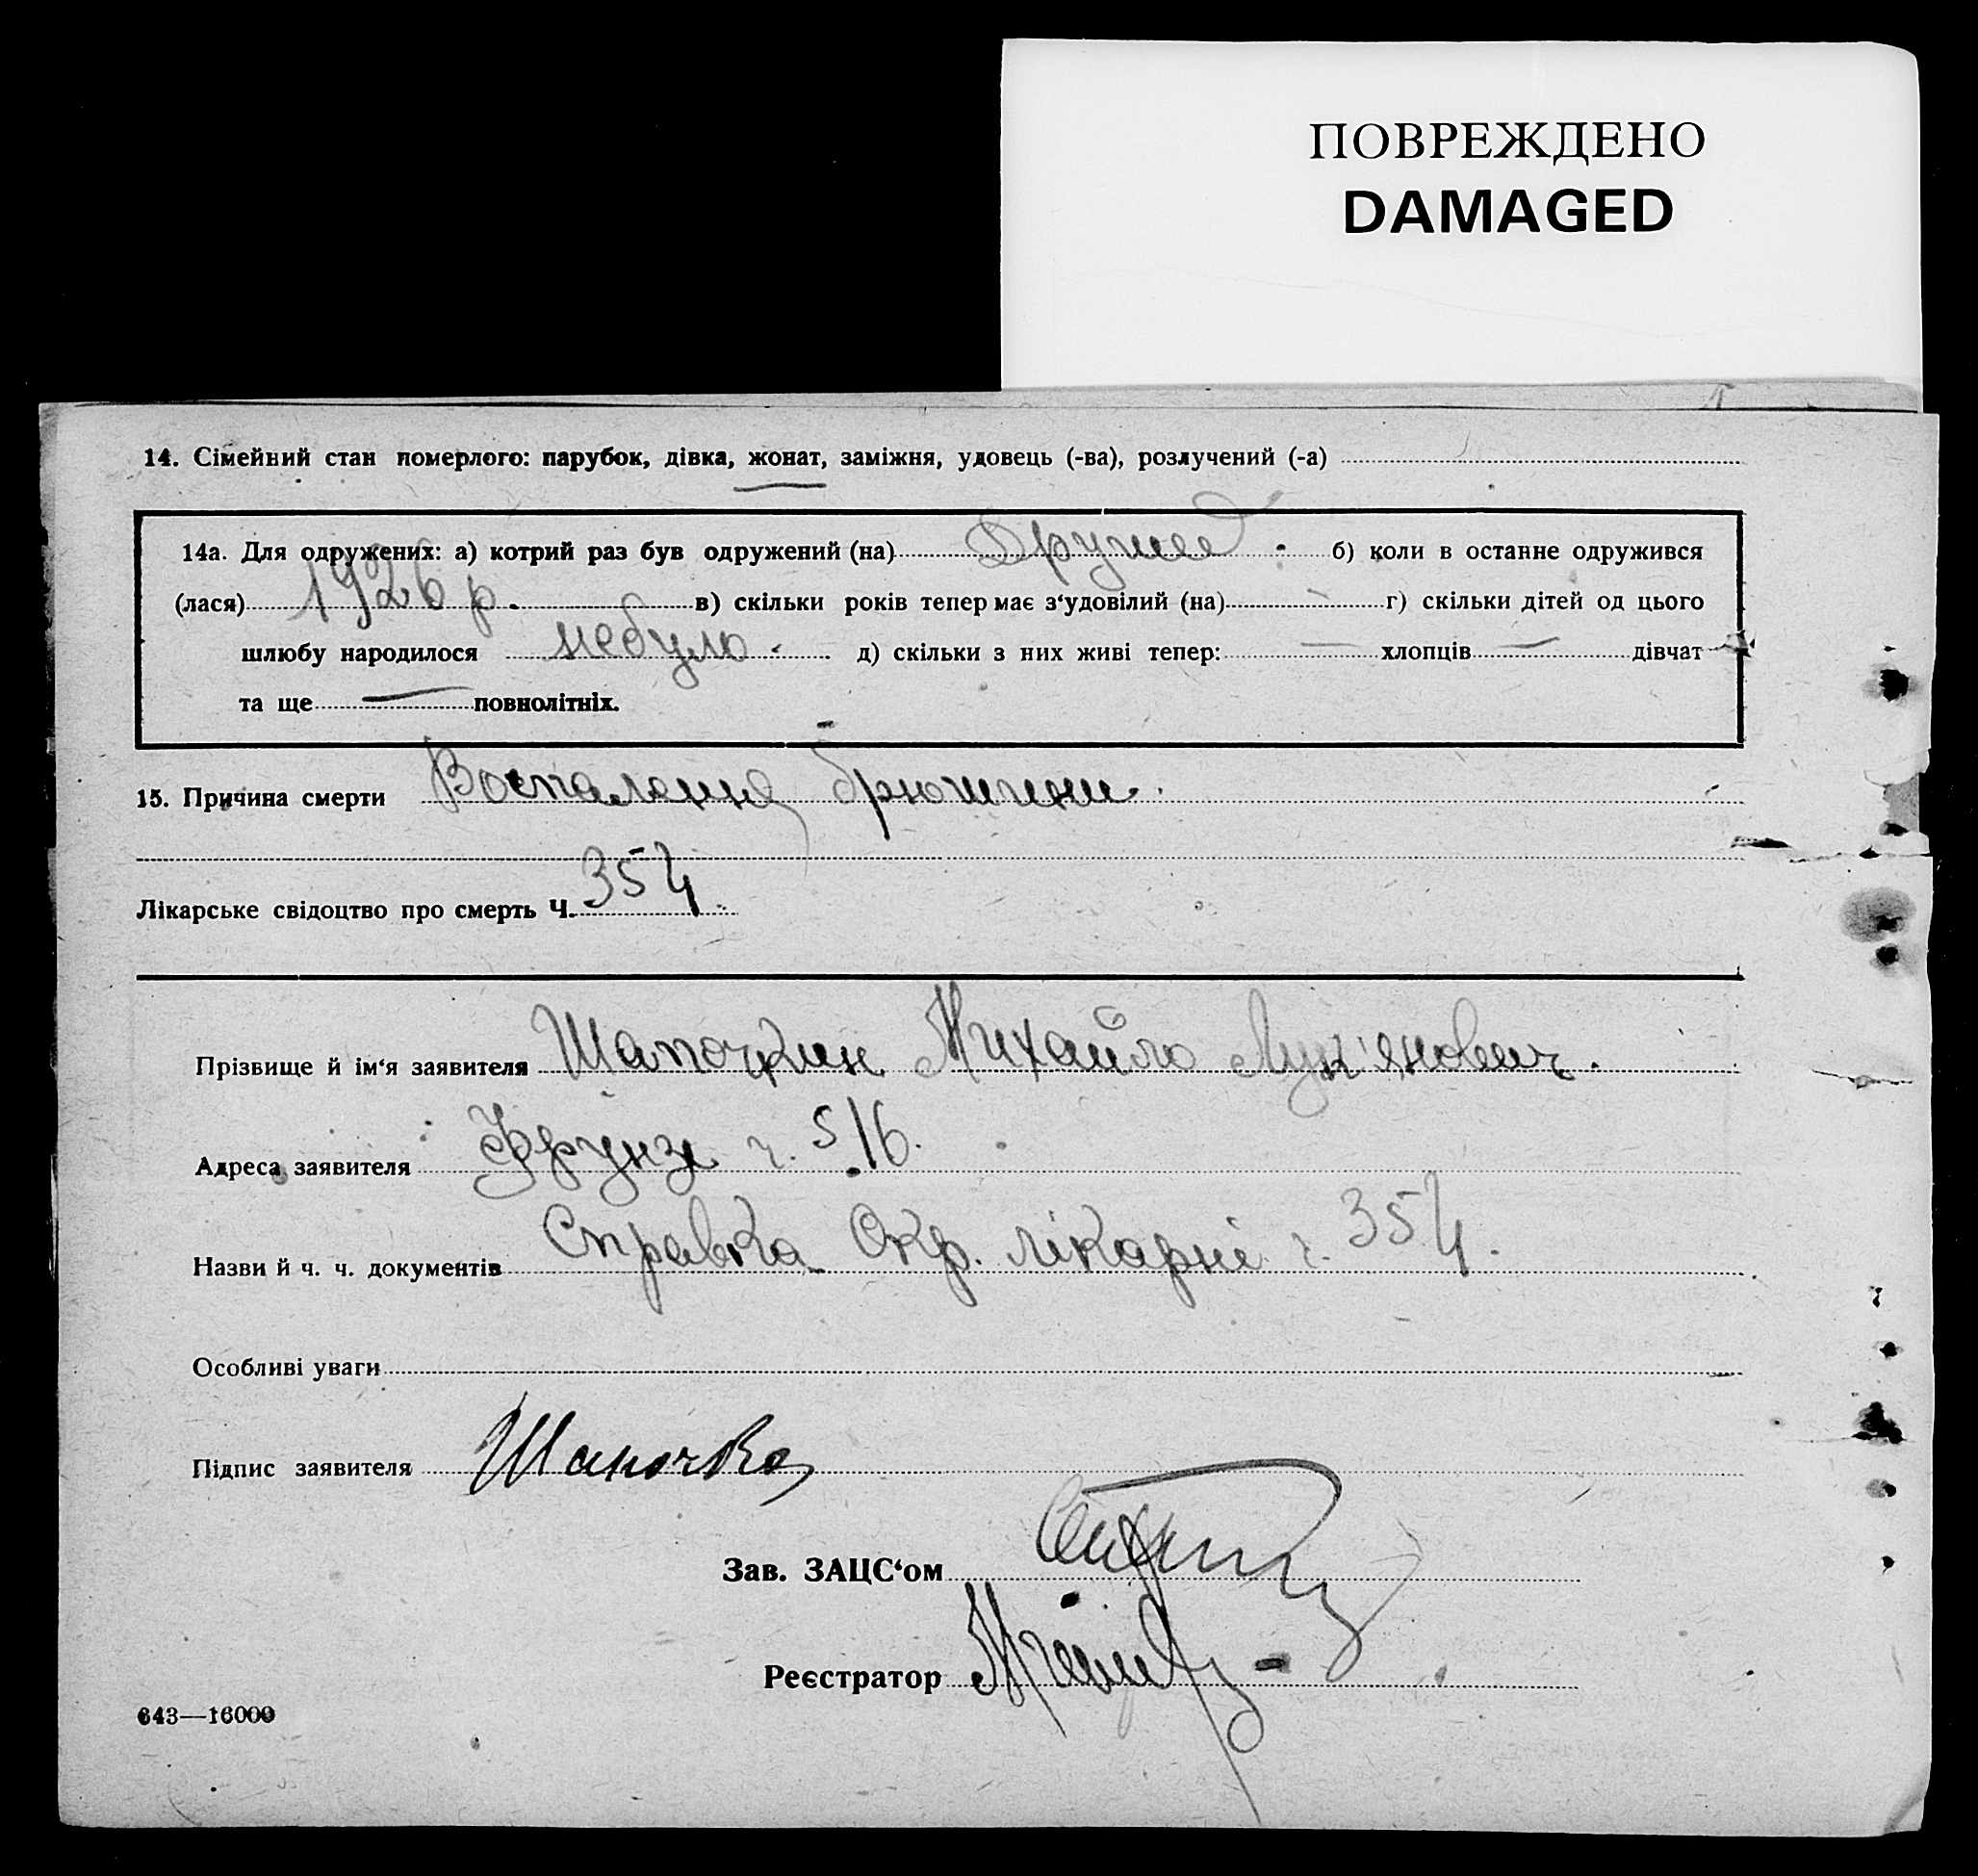 ПОВРЕЖДЕНО
DAMAGED
14. Сімейний стан померлого: парубок, дівка, жонат, заміжня, удовець (-ва), розлучений (-а)
14а. Для одружених: а) котрий раз був одружений (на) б) коли в останне одружився
(лася) 1926 р. в) скільки років тепер має з‘удовілий (на) — г) скільки дітей од цього
шлюбу народилося небуло. д) скільки з них живі тепер: — хлопців — дівчат
та ще — повнолітніх.
15. Причина смерти Воспалення брюшини.
Лікарське свідоцтво про смерть Ч. 354.
Прізвище й ім‘я заявителя Шапочкин Михайло Лук'янович.
Адреса заявителя Фрунзе ч. 516.
Назви й ч. ч. документів Справка Окр. лікарні ч. 354.
Особливі уваги
Підпис заявителя
Зав. ЗАЦС‘ом
Реєстратор
643—16000